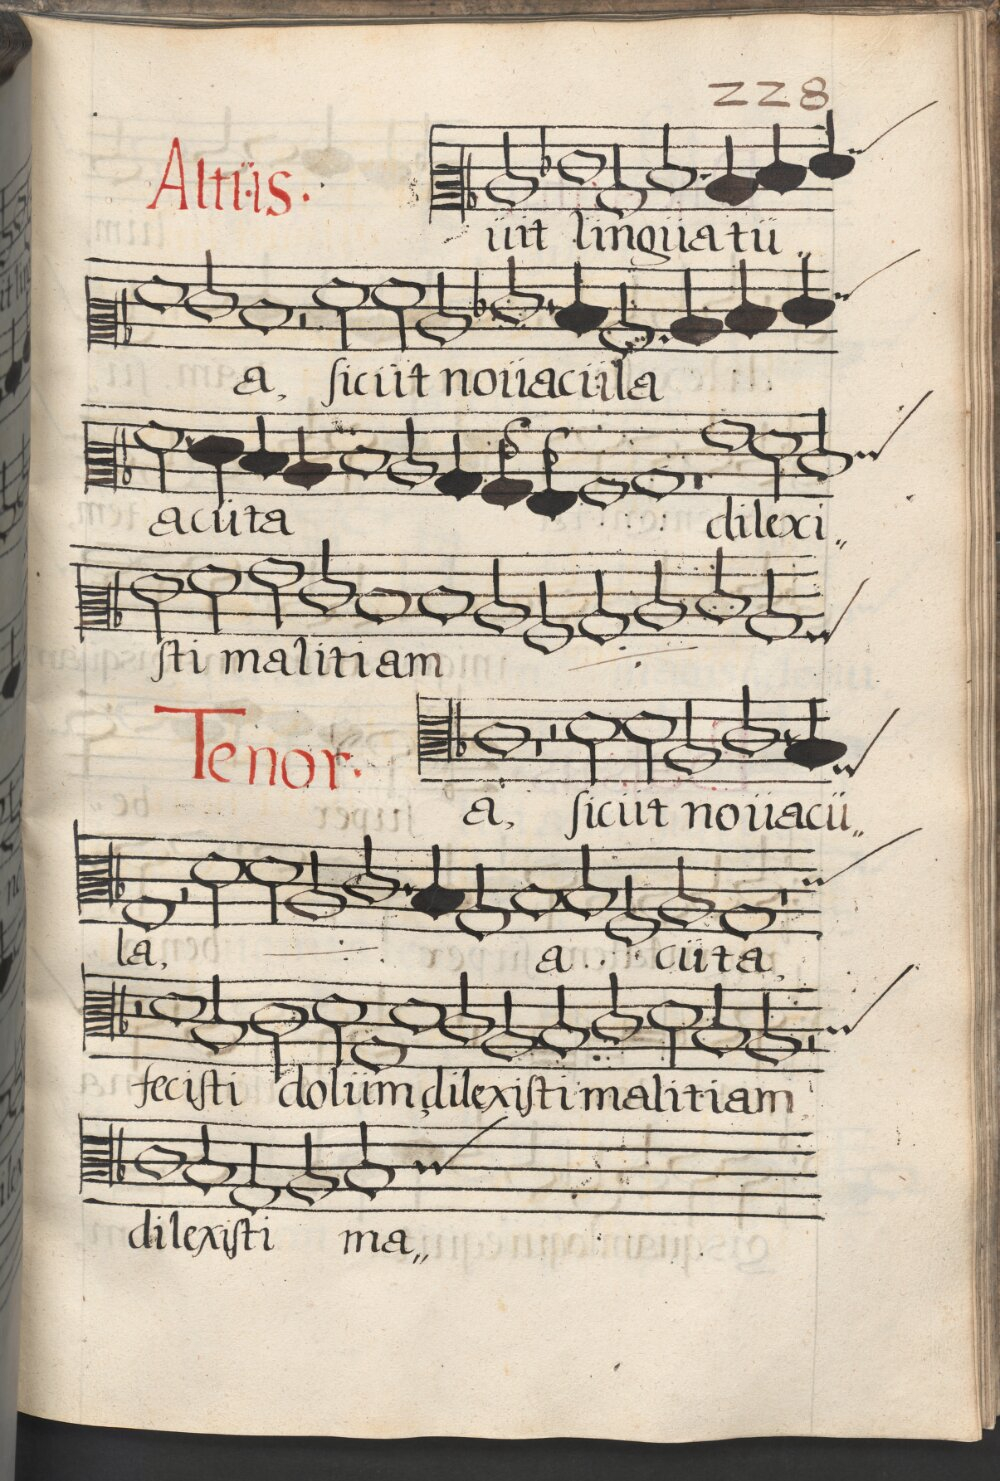 228
Altüs.
üit lingüa tü„
a, sicüt noüacüla
acüta dilexi„
sti malitiam
Tenor.
a, sicüt noüacü„
la, acüta,
fecisti dolüm, dilexisti malitiam
dilexisti ma„